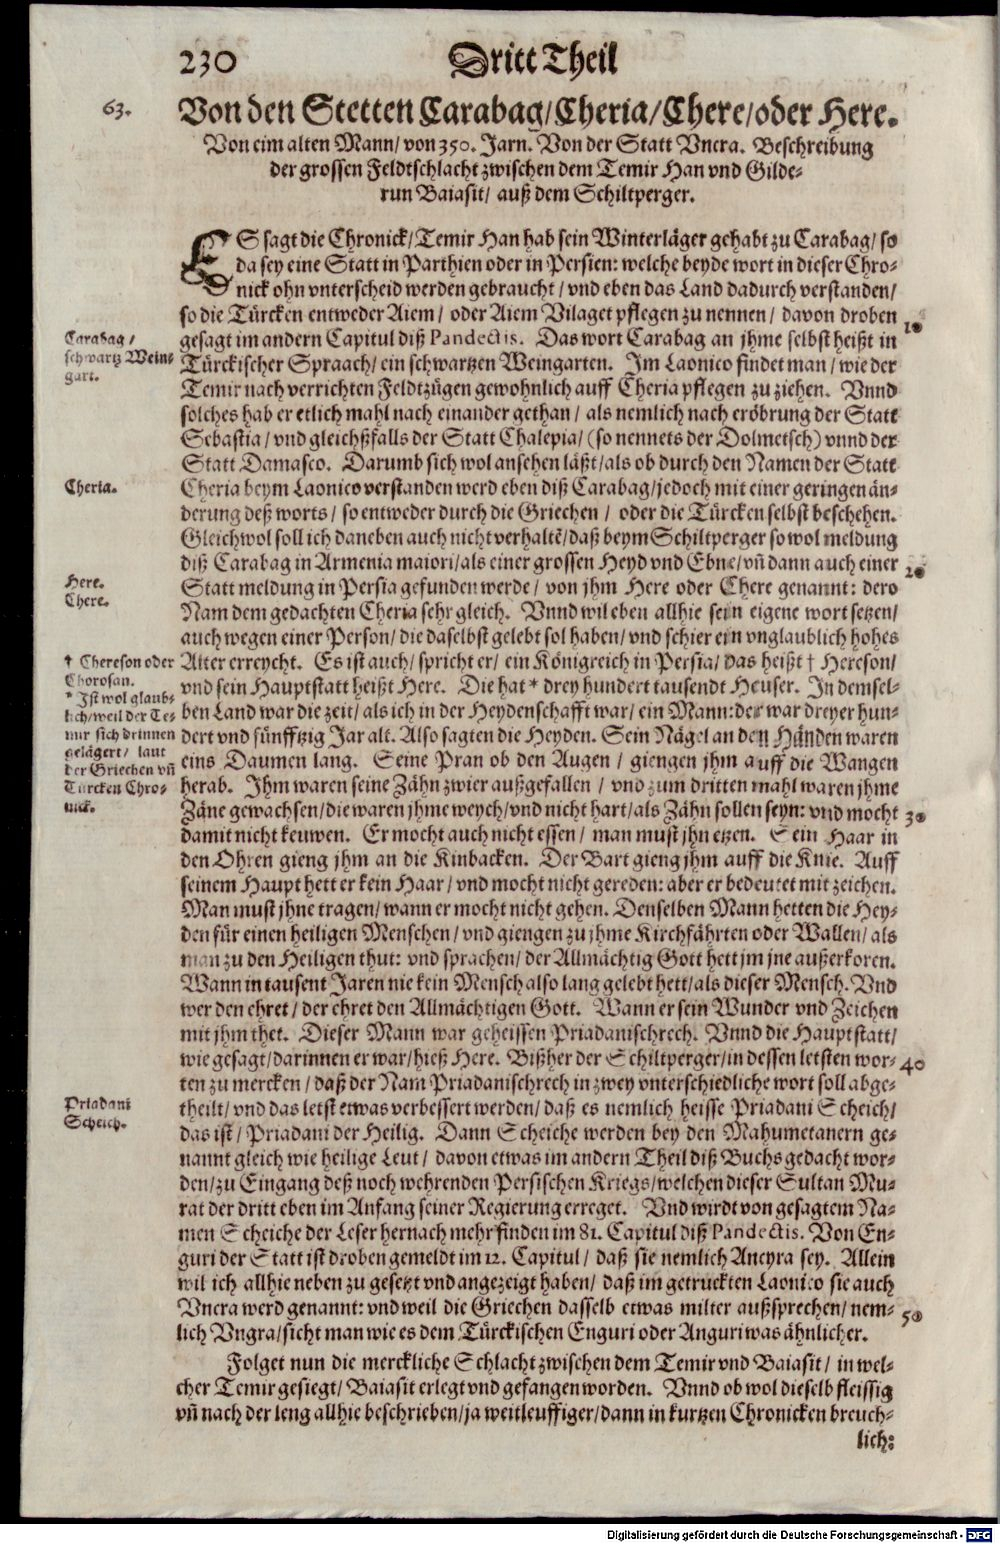 230
Dritt Theil
63.
Von den Stetten Carabag/ Cheria/ Chere/ oder Here.
Von eim alten Mann/ von 350. Jarn. Von der Statt Vncra. Beschreibung
der grossen Feldtschlacht zwischen dem Temir Han vnd Gilde-
run Baiasit/ auß dem Schiltperger.
ES sagt die Chronick/ Temir Han hab sein Winterläger gehabt zu Carabag/ so
da sey eine Statt in Parthien oder in Persien: welche beyde wort in dieser Chro-
nick ohn vnterscheid werden gebraucht/ vnd eben das Land dadurch verstanden/
so die Türcken entweder Aiem/ oder Aiem Vilaget pflegen zu nennen/ davon droben
10
Carabag/
schwartz Wein-
gart.
gesagt im andern Capitul diß Pandectis. Das wort Carabag an jhme selbst heißt in
Türckischer Spraach/ ein schwartzen Weingarten. Im Laonico findet man/ wie der
Temir nach verrichten Feldtzügen gewohnlich auff Cheria pflegen zu ziehen. Vnnd
solches hab er etlich mahl nach einander gethan/ als nemlich nach eröbrung der Statt
Sebastia/ vnd gleichßfalls der Statt Chalepia/ (so nennets der Dolmetsch) vnnd der
Statt Damasco. Darumb sich wol ansehen läßt/ als ob durch den Namen der Statt
Cheria.
Cheria beym Laonico verstanden werd eben diß Carabag/ jedoch mit einer geringen än-
derung deß worts/ so entweder durch die Griechen/ oder die Türcken selbst beschehen.
Gleichwol soll ich daneben auch nicht verhaltē/ daß beym Schiltperger so wol meldung
diß Carabag in Armenia maiori/ als einer grossen Heyd vnd Ebne/ vñ dann auch einer
20
Here.
Chere.
Statt meldung in Persia gefunden werde/ von jhm Here oder Chere genannt: dero
Nam dem gedachten Cheria sehr gleich. Vnnd wil eben allhie sein eigene wort setzen/
auch wegen einer Person/ die daselbst gelebt sol haben/ vnd schier ein vnglaublich hohes
† Chereson oder
Chorosan.
* Ist wol glaub-
lich/ weil der Te-
mir sich drinnen
gelägert/ laut
der Griechen vñ
Türcken Chro-
nick.
Alter erreycht. Es ist auch/ spricht er/ ein Königreich in Persia/ das heißt † Hereson/
vnd sein Hauptstatt heißt Here. Die hat * drey hundert tausendt Heuser. In demsel-
ben Land war die zeit/ als ich in der Heydenschafft war/ ein Mann: der war dreyer hun-
dert vnd fünfftzig Jar alt. Also sagten die Heyden. Sein Nägel an den Händen waren
eins Daumen lang. Seine Pran ob den Augen/ giengen jhm auff die Wangen
herab. Ihm waren seine Zähn zwier außgefallen/ vnd zum dritten mahl waren jhme
Zäne gewachsen/ die waren jhme weych/ vnd nicht hart/ als Zähn sollen seyn: vnd mocht
30
damit nicht keuwen. Er mocht auch nicht essen/ man must jhn etzen. Sein Haar in
den Ohren gieng jhm an die Kinbacken. Der Bart gieng jhm auff die Knie. Auff
seinem Haupt hett er kein Haar/ vnd mocht nicht gereden: aber er bedeutet mit zeichen.
Man must jhne tragen/ wann er mocht nicht gehen. Denselben Mann hetten die Hey-
den für einen heiligen Menschen/ vnd giengen zu jhme Kirchfährten oder Wallen/ als
man zu den Heiligen thut: vnd sprachen/ der Allmächtig Gott hett jm jne außerkoren.
Wann in tausent Jaren nie kein Mensch also lang gelebt hett/ als dieser Mensch. Vnd
wer den ehret/ der ehret den Allmächtigen Gott. Wann er sein Wunder vnd Zeichen
mit jhm thet. Dieser Mann war geheissen Priadanischrech. Vnnd die Hauptstatt/
wie gesagt/ darinnen er war/ hieß Here. Bißher der Schiltperger/ in dessen letsten wor-
40
ten zu mercken/ daß der Nam Priadanischrech in zwey vnterschiedliche wort soll abge-
Priadani
Scheich.
theilt/ vnd das letst etwas verbessert werden/ daß es nemlich heisse Priadani Scheich/
das ist/ Priadani der Heilig. Dann Scheiche werden bey den Mahumetanern ge-
nannt gleich wie heilige Leut/ davon etwas im andern Theil diß Buchs gedacht wor-
den/ zu Eingang deß noch wehrenden Persischen Kriegs/ welchen dieser Sultan Mu-
rat der dritt eben im Anfang seiner Regierung erreget. Vnd wirdt von gesagtem Na-
men Scheiche der Leser hernach mehr finden im 81. Capitul diß Pandectis. Von En-
guri der Statt ist droben gemeldt im 12. Capitul/ daß sie nemlich Ancyra sey. Allein
wil ich allhie neben zu gesetzt vnd angezeigt haben/ daß im getruckten Laonico sie auch
Vncra werd genannt: vnd weil die Griechen dasselb etwas milter außsprechen/ nem-
50
lich Vngra/ sicht man wie es dem Türckischen Enguri oder Anguri was ähnlicher.
Folget nun die merckliche Schlacht zwischen dem Temir vnd Baiasit/ in wel-
cher Temir gesiegt/ Baiasit erlegt vnd gefangen worden. Vnnd ob wol dieselb fleissig
vñ nach der leng allhie beschrieben/ ja weitleuffiger/ dann in kurtzen Chronicken breuch-
lich:
Digitalisierung gefördert durch die Deutsche Forschungsgemeinschaft - DFG